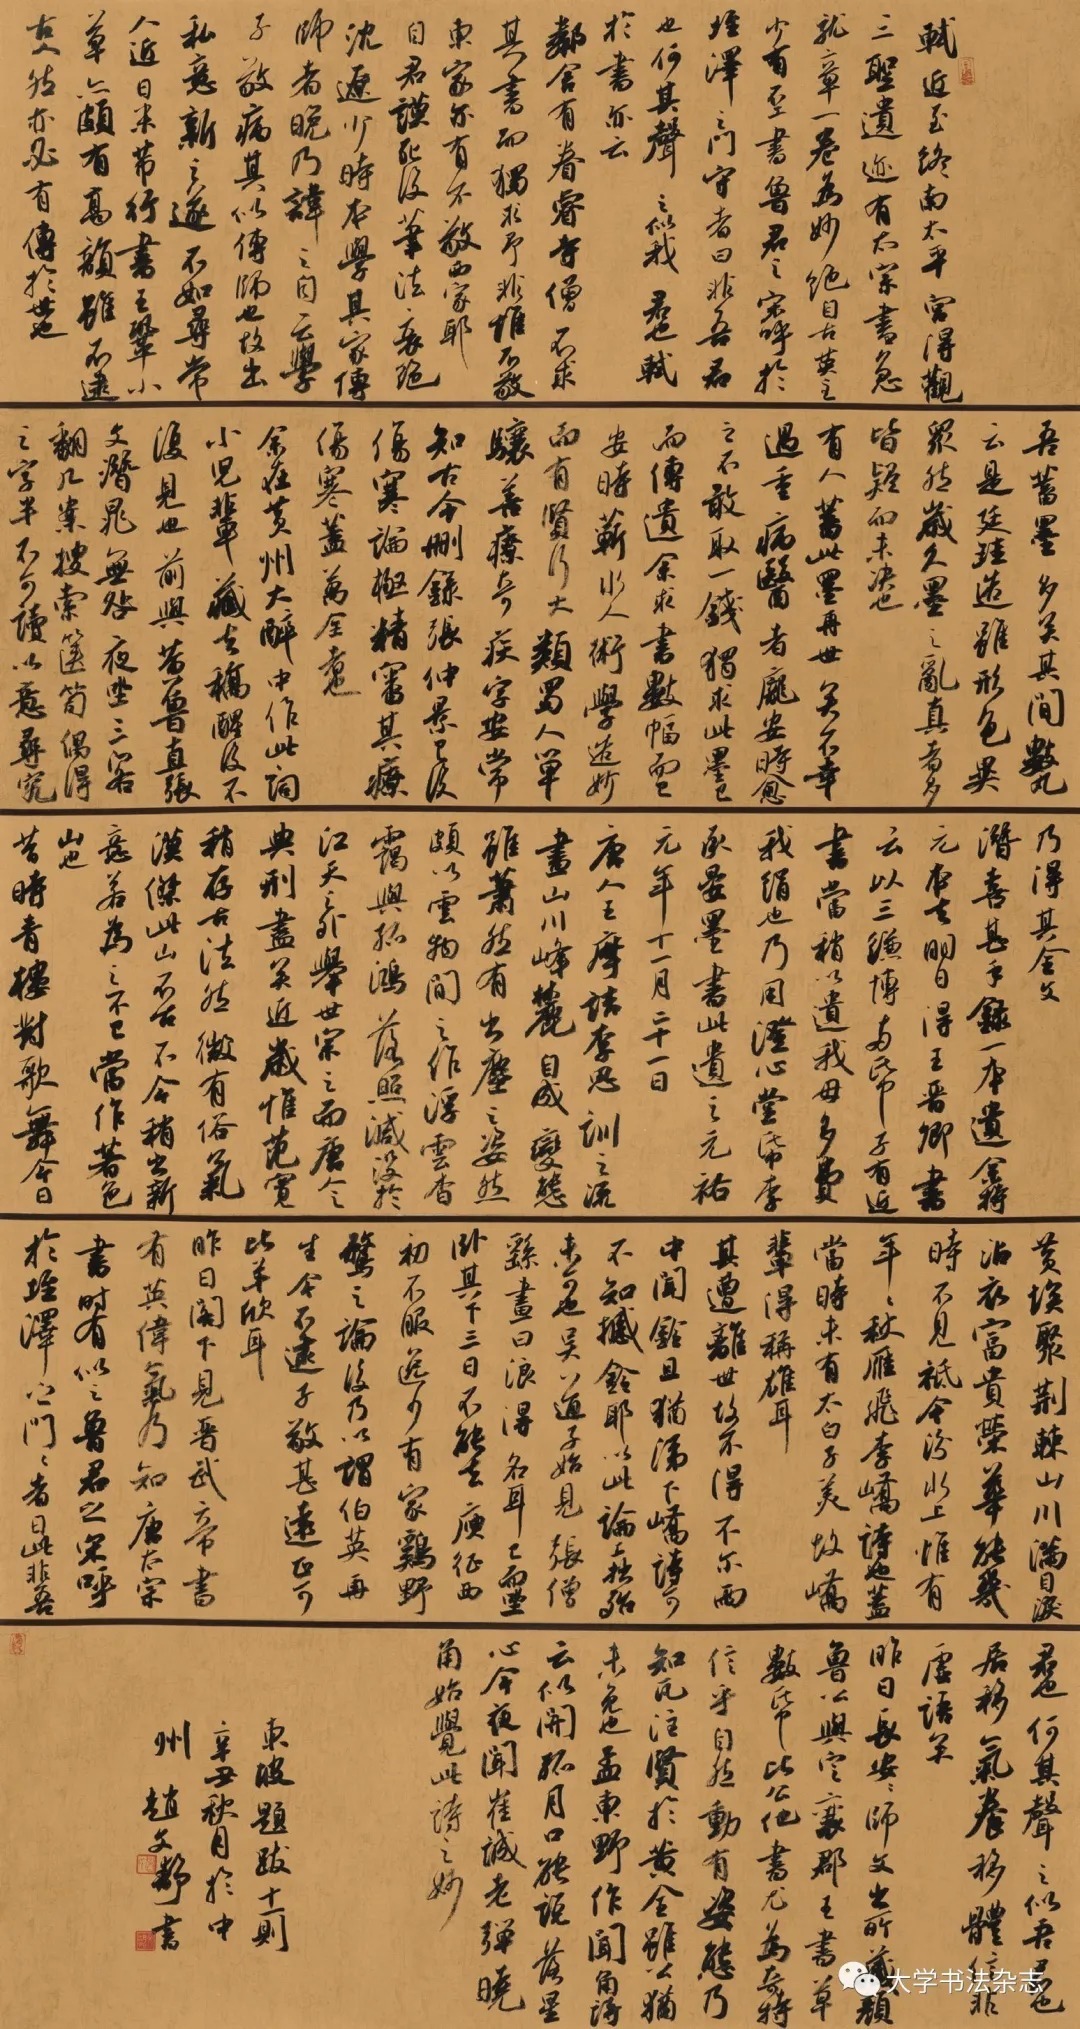 軾近至終南太平宮得觀
三聖遺迹有太宗書急
就章一卷為妙絕自古英主
少有工書魯君之宋呼於
垤澤之門守者曰非吾君
也何其聲之似我君也軾
於書亦云
鄰舍有眷睿寺僧不求
其書而獨求予非惟不敬
東家亦有不敬西家耶
自君謨死後筆法衰絕
沈遼少時本學其家傳
師者晚乃諱之自云學
子敬病其似傳師也故出
私意新之遂不如尋常
人近日米芾行書王鞏小
草亦頗有高韻雖不逮
古人然亦必有傳於世也
吾蓄墨多矣其間數丸
云是廷珪造雖形色異
眾然歲久墨之亂真者多
皆疑而未決也
有人蓄此墨再世矣不幸
過重病醫者龐安時愈
之不敢取一錢獨求此墨已
而傳遺余求書數幅而已
安時蘄水人術學造妙
而有賢行大類蜀人單
驤善療奇疾字安常
知古今刪錄張仲景已後
傷寒論極精審其療
傷寒蓋萬全者也
余在黃州大醉中作此詞
小兒輩藏去稿醒後不
復見也前與黃魯直張
文潛晁無咎夜坐三客
翻几案搜索篋笥偶得
之字半不可讀以意尋究
乃得其全文
潛喜甚手錄一本遺余持
元本去明日得王晉卿書
云以三縑博兩紙子有近
書當稍以遺我毋多費
我絹也乃用澄心堂紙李
承晏墨書此遺之元祐
元年十一月二十一日
唐人王摩詰李思訓之流
畫山川峰麓自成變態
雖蕭然有出塵之姿然
頗以雲物間之作浮雲杳
靄與孤鴻落照滅沒於
江天之外舉世宗之而唐人
典刑盡矣近歲惟范寬
稍存古法然微有俗氣
漢傑此山不古不今稍出新
意若為之不已當作著色
山也
昔時青樓對歌舞今日
黃埃聚荊棘山川滿目淚
沾衣富貴榮華能幾
時不見祗今汾水上惟有
年年秋雁飛李嶠詩也蓋
當時未有太白子美故嶠
輩得稱雄耳
其遭離世故不得不爾雨
中聞鈴且猶涕下嶠詩可
不知撼鈴耶以此論工拙殆
未可也吳道子始見張僧
繇畫曰浪得名耳已而坐
臥其下三日不能去庾征西
初不服逸少有家雞野
鶩之論後乃以謂伯英再
生今不逮子敬甚遠正可
比羊欣耳
昨日閣下見晉武帝書
有英偉氣乃知唐太宗
書時有似之魯君之宋呼
於垤澤之門門者曰此非吾
君也何其聲之似吾君也
居移氣養移體信非
虛語矣
昨日長安安師文出所藏顏
魯公與定襄郡王書草
數紙比公他書尤為奇特
信手自然動有姿態乃
知瓦注賢於黃金雖公猶
未免也孟東野作聞角詩
云似開孤月口能說落星
心今夜聞崔誠老彈曉
角始覺此詩之妙
東坡題跋十一則
辛丑秋月於中
州趙文靜書
大学书法杂志